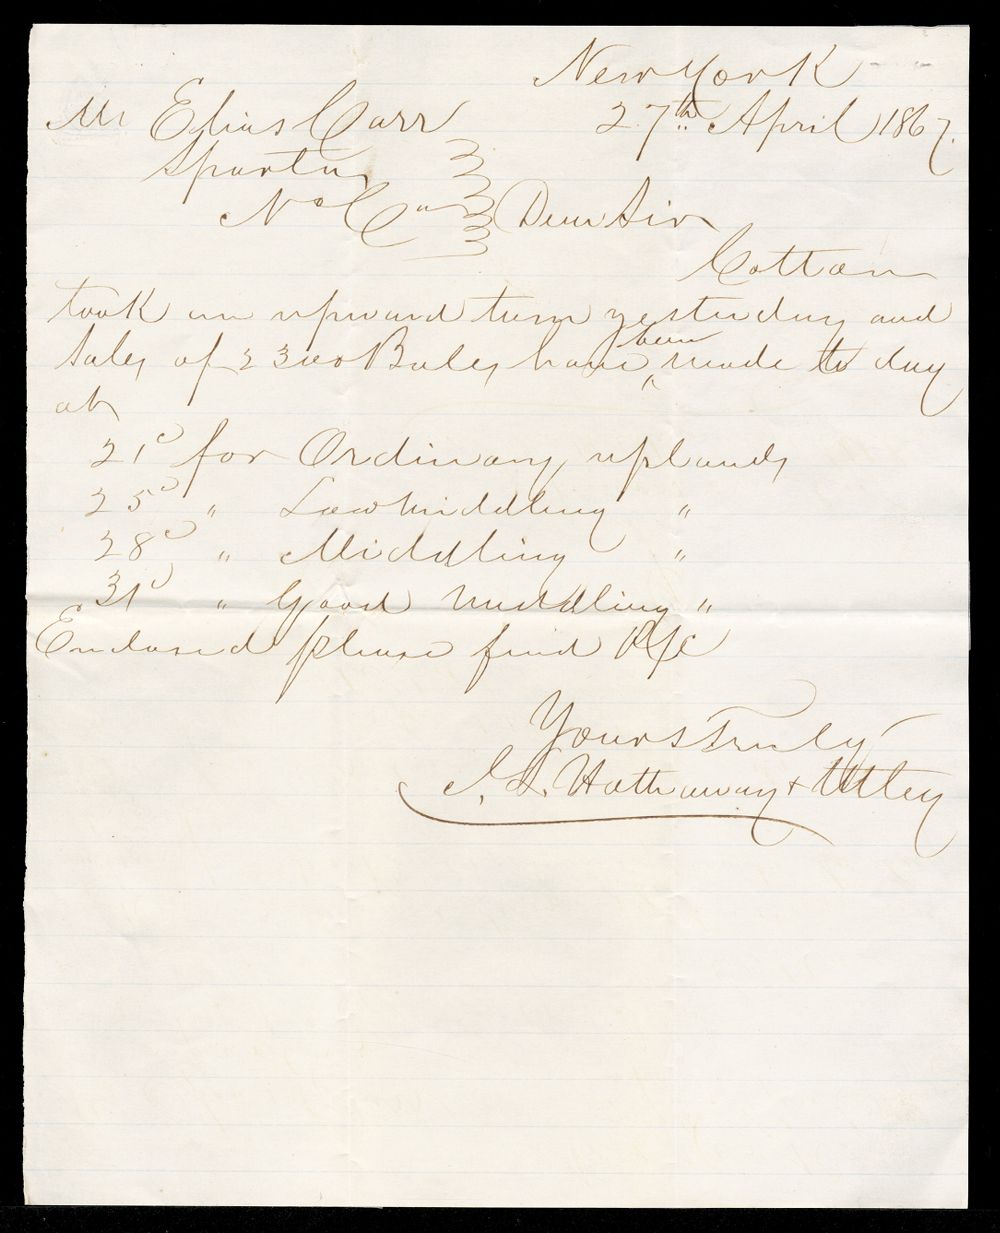 New York
27th. April 1867.
Mr Elias Carr
Sparta
No Ca Dear Sir
Cotton
took an upward turn yesterday and
Sales of 2300 Bales have been made to day
at
21c for Ordinary uplands
25c " Low middling "
28c " Middling "
31c " Good middling "
Enclosed please find
Yours Truly
J. L. Hathaway & Utley